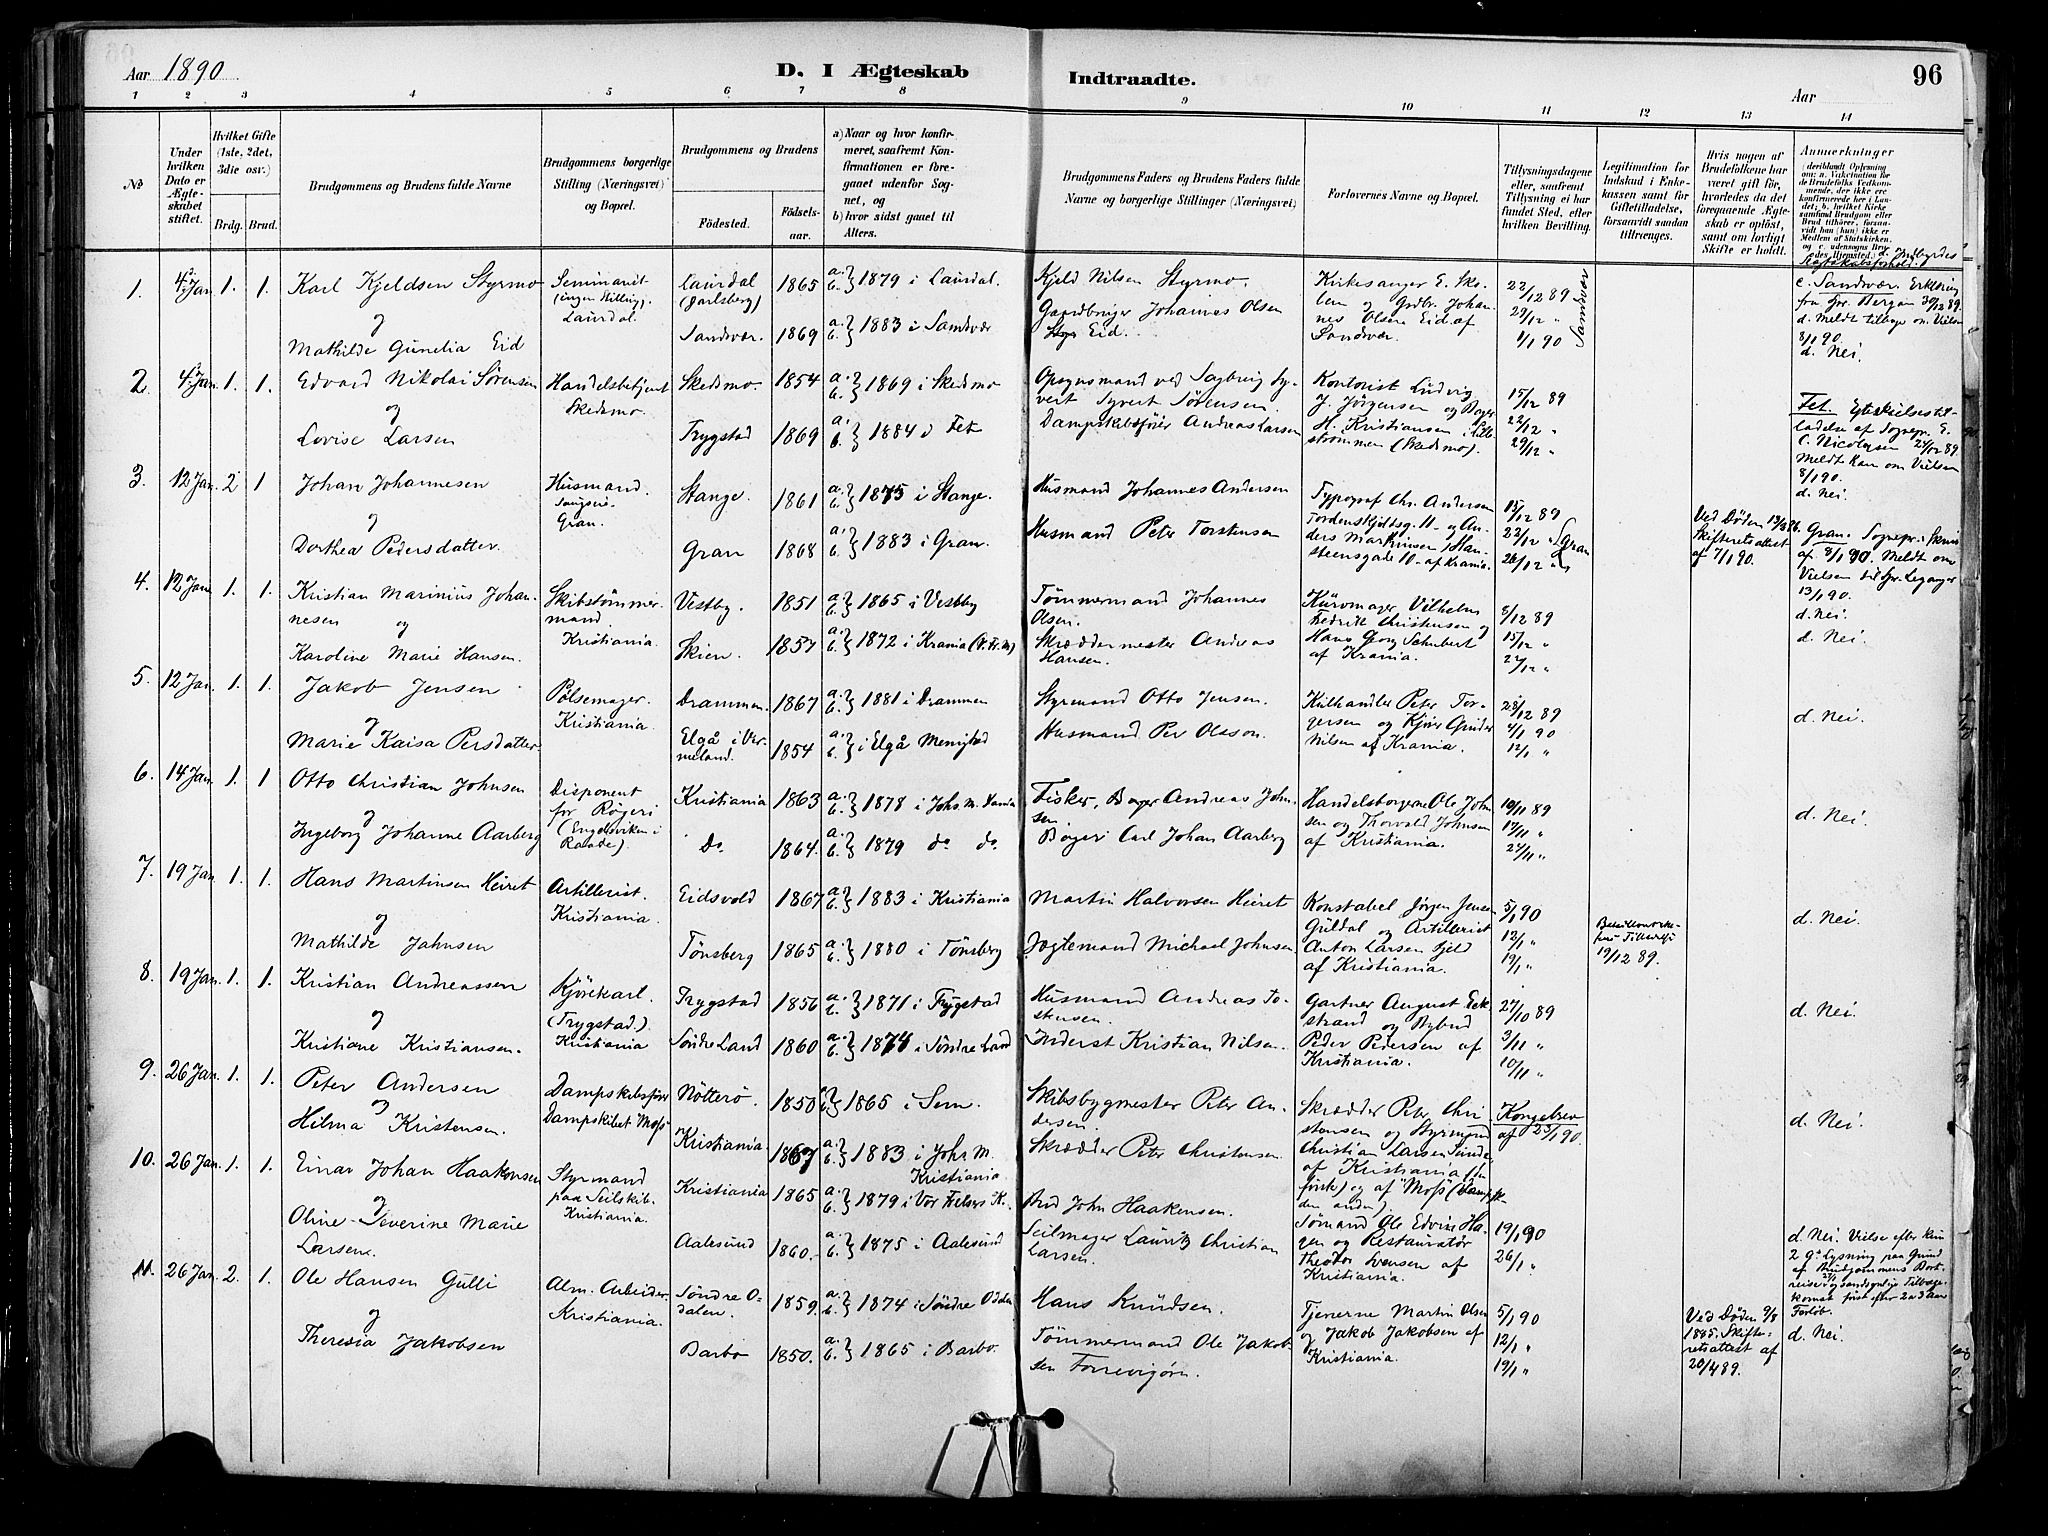 Aar 1890
D. I Ægteskab
Indtraadte.
Aar
96
1 2 3 4 5 6 7 8 9 10 11 12 13 14
No
Under hvilken Dato er Ægteskabet stiftet.
Hvilket Gifte (1ste, 2det, 3die osv.)
Brdg. Brud.
Brudgommens og Brudens fulde Navne
Brudgommens borgerlige Stilling (Næringsvei) og Bopæl.
Brudgommens og Brudens
Födested.
Födselsaar.
a) Naar og hvor konfirmeret, saafremt Konfirmationen er foregaaet udenfor Sognet, og
b) hvor sidst gaaet til Alters.
Brudgommens Faders og Brudens Faders fulde Navne og borgerlige Stillinger (Næringsvei)
Forlovernes Navne og Bopæl.
Tillysningsdagene eller, saafremt Tillysning ei har fundet Sted, efter hvilken Bevilling.
Legitimation for Indskud i Enkekassen samt for Giftetilladelse, forsaavidt saadan tiltrænges.
Hvis nogen af Brudefolkene har været gift för, hvorledes da det foregaaende Ægteskab er oplöst, samt om lovligt Skifte er holdt.
Anmærkninger
1. 4. Jan. 1. 1. Karl Kjeldsen Styrmo
og
Mathilde Gunelia Eid
Seminarist (ingen Stilling). Laurdal.
Laurdal (Jarlsberg) 1865 a. b. } 1879 i Laurdal.
Sandsvær. 1869 a. b. } 1883 i Sandsvær
Kjeld Nilsen Styrmo.
Gaardbruger Johannes Olsen Eid.
Kirkesanger E. og Grdbr. Johannes Olsen Eid af Sandsvær.
22/12 89
29/12 „
1/1 90
Sandsvær
c. Sandsvær. Erklæring fra Spr. 30/12 89.
d. Meldt tilbage om Vielsen 8/1 90.
d. Nei.
2. 4. Jan. 1. 1. Edvard Nikolai Sørensen
og
Lovise Larsen
Handelsbetjent Skedsmo.
Skedsmo 1854 a. b. } 1869 i Skedsmo
Trygstad 1869 a. b. } 1884 i Fet
Opsynsmand ved Sagbrug Syvert Syvert Sørensen.
Dampskibsfører Andreas Larsen
Kontorist Ludvig J. Jørgensen og H. Kristiansen i Lillestrømmen (Skedsmo).
15/12 89
22/12 „
29/12 „
Fet.
8/1 90.
d. Nei.
3. 12 Jan. 2 1 Johan Johannesen
og
Dorthea Pedersdatter
Husmand. Gran.
Stange. 1861 a. b. } 1875 i Stange.
Gran 1868 a. b. } 1883 i Gran.
Husmand Johannes Andersen
Husmand Peter Torstensen
Typograf Chr. Andersen Tordenskjoldsg. 11 og Anders Martinsen Hansteensgade 10 af Krania.
15/12 89
22/12 „
26/12 „
Gran
Ved Døden 13/3 86. Skifteretsattest af 7/1 90.
Gran. Sognepr. af 8/1 90. Meldt om Vielsen til Spr. 13/1 90.
d. Nei.
4. 12 Jan. 1. 1. Kristian Marinius Johannesen
og
Karoline Marie Hansen.
Skibstømmermand. Kristiania.
Vestby. 1851 a. b. } 1865 i Vestby
Skien. 1857 a. b. } 1872 i Krania (V. Fr. M)
Tømmermand Johannes Olsen.
Skræddermester Andreas Hansen.
Kurvmager Vilhelm Fredrik Christensen og Hans Georg Schubert af Krania.
8/12 89
15/12 „
22/12 „
d. Nei.
5. 12 Jan. 1. 1. Jakob Jensen
og
Marie Kaisa Persdatter
Pølsemager. Kristiania.
Drammen. 1867 a. b. } 1881 i Drammen
Elgå i Vermeland. 1854 a. b. } i Elgå Menighed
Styrmand Otto Jensen.
Husmand Per Olsson.
Kulhandler Peter Torgersen og Nilsen af Krania.
28/12 89
4/1 90
12/1 „
d. Nei.
6. 14 Jan. 1. 1 Otto Christian Johnsen
og
Ingeborg Johanne Aarberg
Disponent for Røgeri (Engelsviken i Raade).
Kristiania 1863 a. b. } 1878 i Johs M. Kania
Do 1864. a. b. } 1879 do do
Fisker, Andreas Johnsen
Bøger Carl Johan Aarberg
Handelsborgerne Ole Johnsen og Thorvald Johnsen af Kristiania.
10/11 89
17/11 „
24/11 „
d. Nei.
7. 19 Jan. 1. 1. Hans Martinsen Heiret
og
Mathilde Johnsen
Artillerist. Kristiania.
Eidsvold 1867 a. b. } 1883 i Kristiania
Tønsberg 1865 a. b. } 1880 i Tønsberg
Martin Halvorsen Heiret
Jagtemand Michael Johnsen
Konstabel Jørgen Jensen Guldal og Artillerist Anton Larsen Fjeld af Kristiania.
5/1 90
12/1 „
19/1 „
19/12 89.
d. Nei.
8. 19 Jan. 1. 1. Kristian Andreassen
og
Kristiane Kristiansen.
Kjørekarl. (Trygstad.) Kristiania
Trygstad 1856 a. b. } 1871 i Trygstad
Søndre Land 1860 a. b. } 1874 i Søndre Land
Husmand Andreas Tostensen.
Inderst Kristian Nilsen.
Gartner August Eckstrand og Bybud Peder Pedersen af Kristiania.
27/10 89
3/11 „
10/11 „
d. Nei.
9. 26 Jan. 1. 1. Peter Andersen
og
Hilma Kristensen.
Dampskibsfører Dampskibet Moss
Nötterö. 1850 } 1865 i Sem.
Kristiania 1867 a. b. } 1883 i Johs M. Kristiania
Skibsbygmester Peter Andersen.
Skrædder Peter Christensen
Skrædder Peter Christensen og Styrmand Christian Larsen af Kristiania (den første) og af "Moss" (den anden).
Kongebrev af 23/1 90.
d. Nei.
10. 26 Jan. 1. 1. Einar Johan Haakensen
og
Oline Severine Marie Larsen.
Styrmand paa Seilskib. Kristiania.
Kristiania 1865 a. b. } 1879 i Vor Frelsers K.
Aalesund 1860. a. b. } 1875 i Aalesund
John Haakensen.
Seilmager Lauritz Christian Larsen.
Sømand Ole Edvin Hagen og Restauratør Theodor Svensen af Kristiania.
19/1 90
26/1 „
d. Nei. Vielse efter kun 2 Gs Lysning paa Grund af Brudgommens Bortreise og sandsynlig Tilbagekomst først efter 2 a 3 Aar Forløb.
11. 26 Jan. 2. 1. Ole Hansen Gulli
og
Theresia Jakobsen
Alm. Arbeider. Kristiania.
Søndre Odalen. 1859. a. b. } 1874 i Søndre Odalen
Barbo 1850. a. b. } 1865 i Barbo.
Hans Knudsen.
Tømmermand Ole Jakobsen
Tjenerne Martin Olsen og Jakob Jakobsen af Kristiania.
5/1 90
12/1 „
19/1 „
Ved Døden 9/8 1885. Skifteretsattest af 20/4 89.
d. Nei.